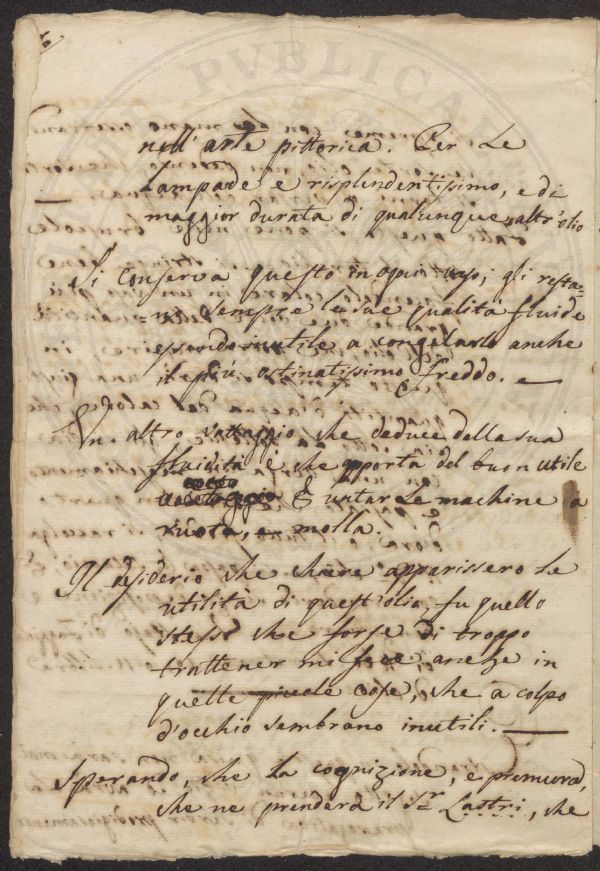 nell'arte pittorica. Per Le
Lampade e risplendentissimo, e di
maggior durata di qualunque altr'olio
Si conserva questo in ogni vaso; gli resta=
=no sempre le sue qualità fluide
essendo inutile a congelarlo anche
il più ostinatissimo freddo. —
Un altro vattaggio che deduce della sua
fluidità è che apporta del buon utile
untar Le machine a
ruota, e molla.
Il desiderio che chiare apparissero Le
utilità di quest'olio, fu quello
stesso che forse di troppo
trattener mi fece anche in
quelle picole cose, che a colpo
d'occhio sembrano inutili. —
Sperando, che La cognizione, e premura,
che ne prenderà il Sr. Lastri, che